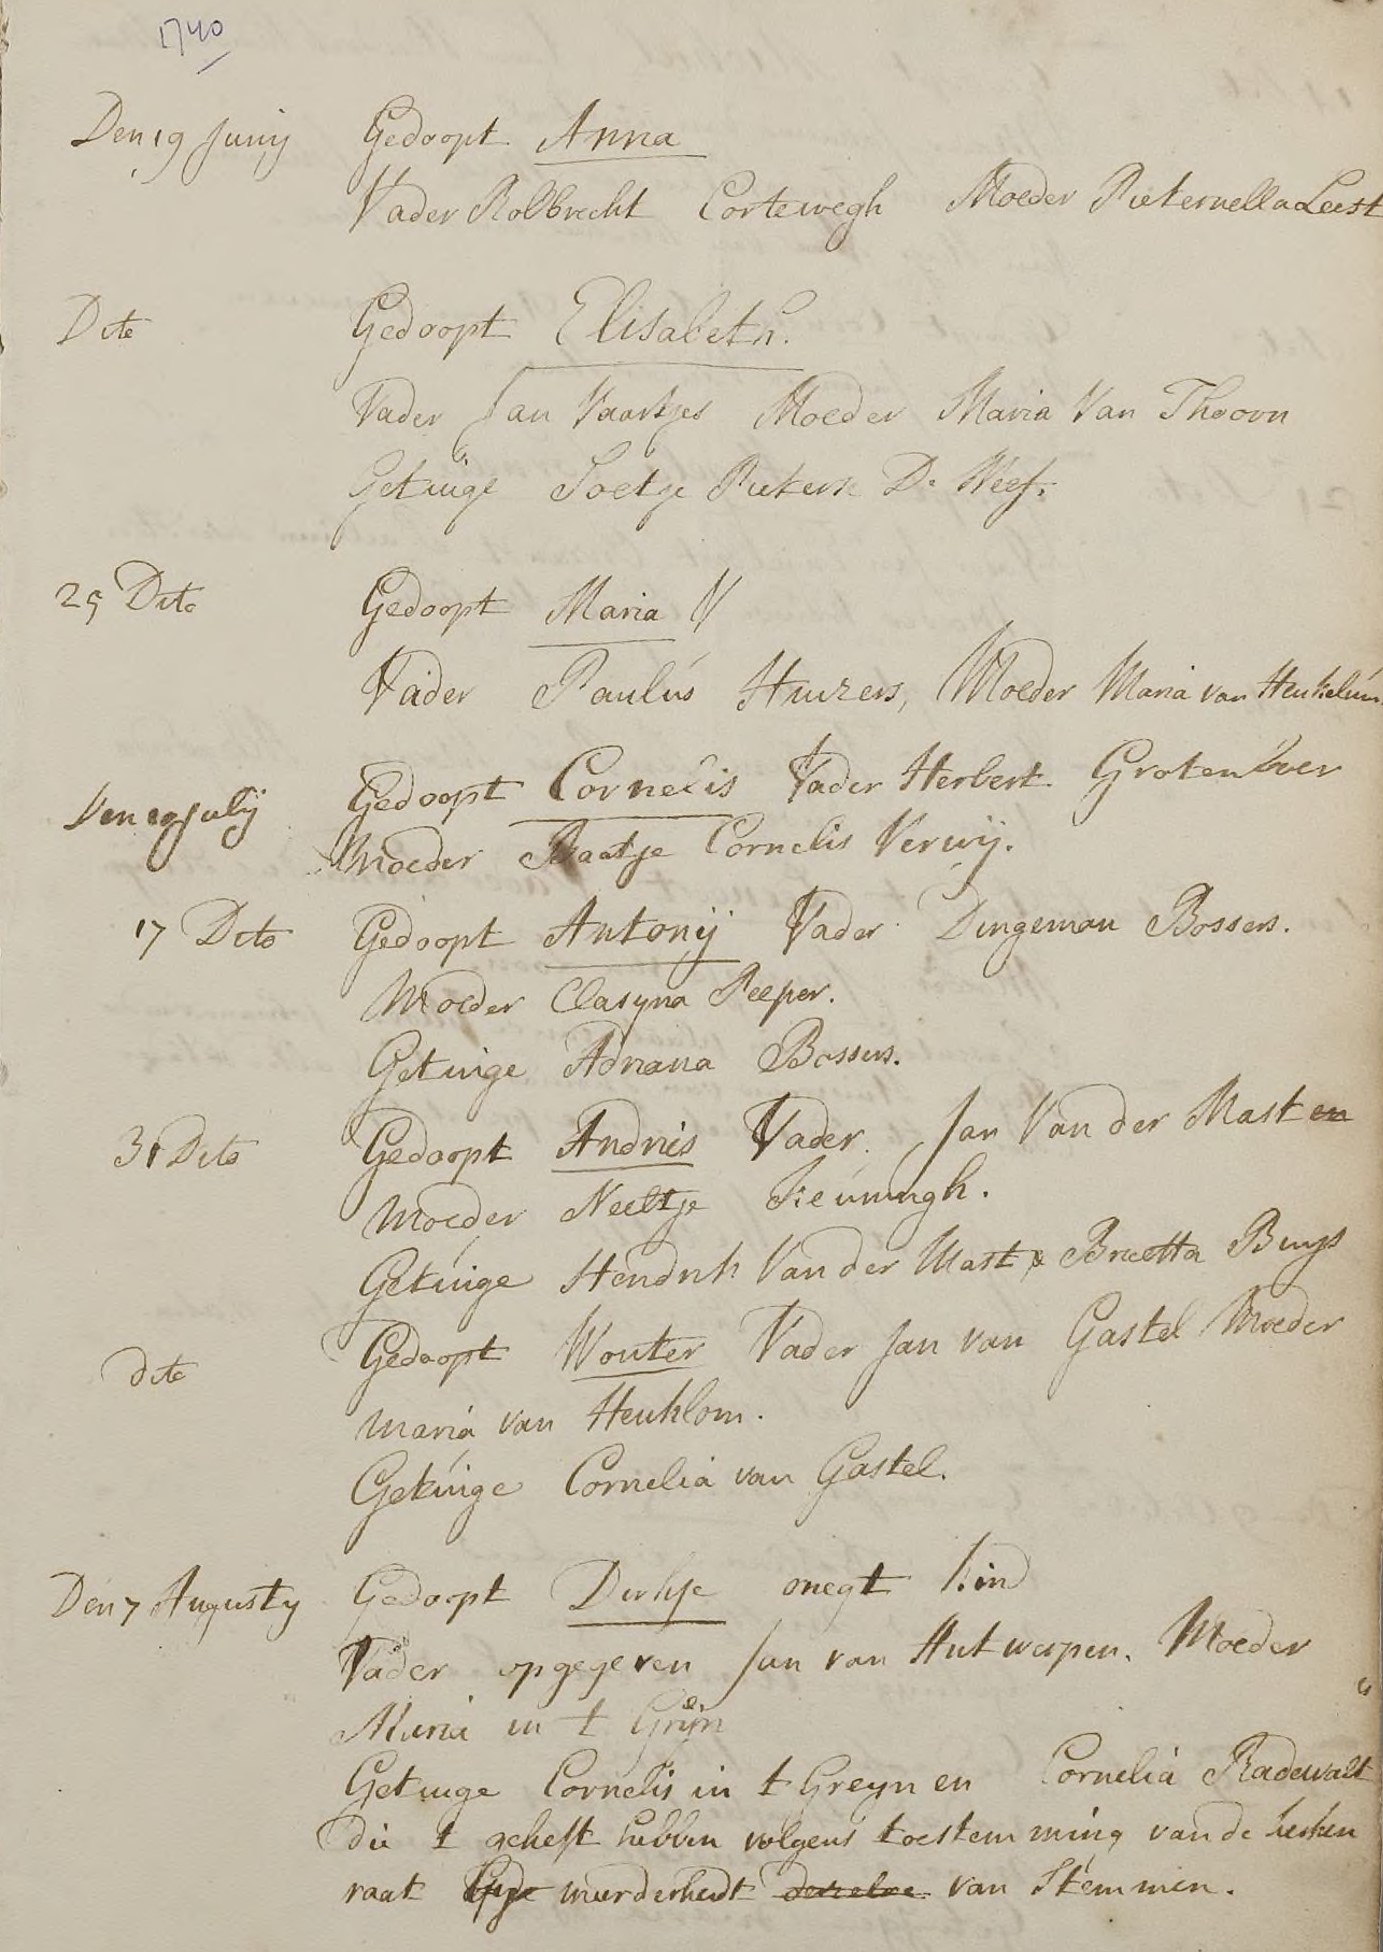 1740
Den 19 Junij Gedoopt Anna
Vader Rolbrecht Cortewegh Moeder Pieternella Leest
Dito Gedoopt Elisabeth.
Vader Jan Vaartjes Moeder Maria Van Thoorn
Getuige Soetje Pieterse De Neef.
25 Dito Gedoopt Maria
Vader Paulus Huizers, Moeder Maria van Heukelum
Den Julij Gedoopt Cornelis Vader Herbert Grotenboer
Moeder Baatje Cornelis Verwij.
17 Dito Gedoopt Antonij Vader Dingeman Bossers.
Moeder Clasyna Peeper.
Getuige Adriana Bossers.
31 Dito Gedoopt Andries Vader Jan Van der Mast en
Moeder Neeltje
Getuige Hendrik Van der Mast & Breetta Buys
dito Gedoopt Wouter Vader Jan van Gastel Moeder
Maria van Heuklom.
Getuige Cornelia van Gastel.
Den 7 Augusty Gedoopt Dirkje onegt kind
Vader opgegeven Jan van Antwerpen. Moeder
Maria in t Greyn
Getuige Cornelis in t Greyn en Cornelia Radewalt
die t geheft hebben volgens toestemming van de kerken
raat meerderheidt derselve van Stemmen.